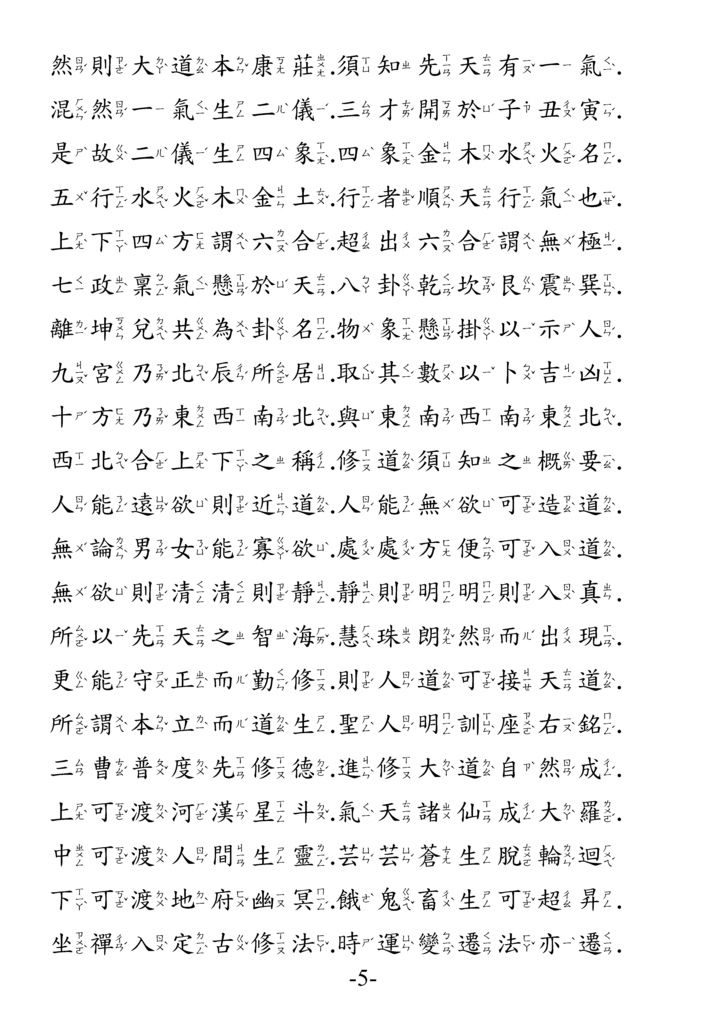 然則大道本康莊.須知先天有一氣.
混然一氣生二儀.三才開於子丑寅.
是故二儀生四象.四象金木水火名.
五行水火木金土.行者順天行氣也.
上下四方謂六合.超出六合謂無極.
七政稟氣懸於天.八卦乾坎艮震巽.
離坤兌共為卦名.物象懸掛以示人.
九宮乃北辰所居.取其數以卜吉凶.
十方乃東西南北.與東南西南東北.
西北合上下之稱.修道須知之概要.
人能遠欲則近道.人能無欲可造道.
無論男女能寡欲.處處方便可入道.
無欲則清清則靜.靜則明明則入真.
所以先天之智海.慧珠朗然而出現.
更能守正而勤修.則人道可接天道.
所謂本立而道生.聖人明訓座右銘.
三曹普度先修德.進修大道自然成.
上可渡河漢星斗.氣天諸仙成大羅.
中可渡人間生靈.芸芸蒼生脫輪迴
下可渡地府幽冥.餓鬼畜生可超昇.
坐禪入定古修法.時運變遷法亦遷.
-5-